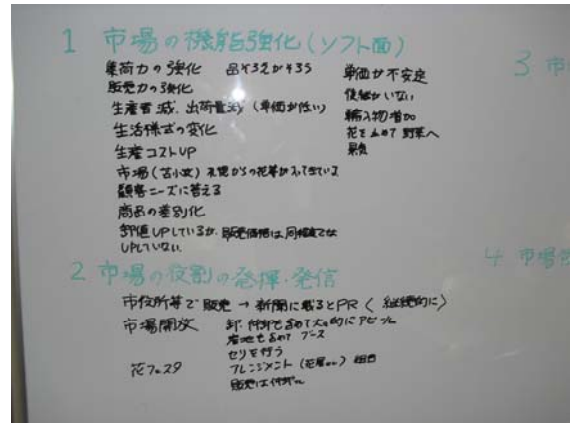 1 市場の機能強化(ソフト面)
集荷力の強化
販売力の強化
生産者減、出荷量減(単価が低い)
生活様式の変化
生産コストUP
市場(苫小牧)札幌からの花等が入ってきている
顧客ニーズに答える
商品の差別化
卸値UPしているが、販売価格は同程度では
UPしていない。
単価が不安定
後継がいない
輸入物増加
花を止めて野菜へ
2 市場の役割の発揮・発信
市役所等で販売 → 新聞に載るとPR〈継続的に〉
市場開放
卸・仲卸も含めて大々的にアピール
産地も含めて ブース
セリを行う
花フェスタ
アレンジメント(花屋さん)
販売は仲卸
3 市
4 市場